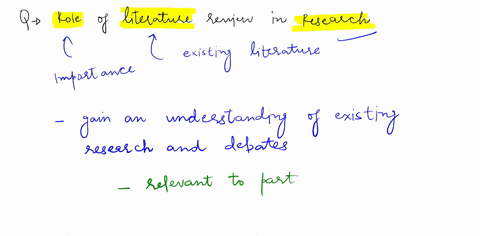 Q→ Role of literature review in Research
existing literature
Importance
- gain an understanding of existing
research and debates
- relevant to part